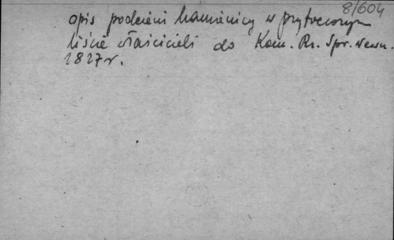 8/604
opis podcieni kamienicy w przytoczonym
liście właścicieli do Kom. Rz. Spr. Wewn.
1827 r.